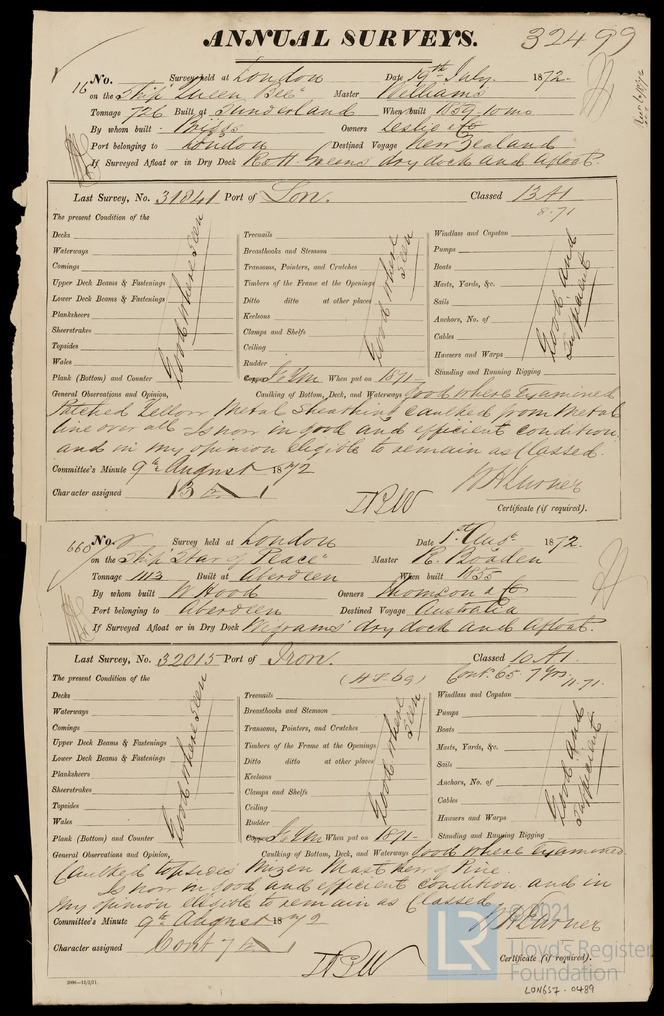 ANNUAL SURVEYS. 32499
16 No. Survey held at London Date 19th July. 1872.
on the Ship "Queen Bee" Master Williams
Tonnage 726 Built at Sunderland When built 1859-10mo
By whom built Briggs Owners Leslie & Co
Port belonging to London Destined Voyage New Zealand
If Surveyed Afloat or in Dry Dock R & H Greens dry dock and afloat.
Last Survey, No. 31841 Port of Lon. Classed 13 A1
8.71
The present Condition of the
Decks
Waterways
Comings
Upper Deck Beams & Fastenings
Lower Deck Beams & Fastenings
Planksheers
Sheerstrakes
Topsides
Wales
Plank (Bottom) and Counter
Good where seen
Treenails
Breasthooks and Stemson
Transoms, Pointers, and Crutches
Timbers of the Frame at the Openings
Ditto ditto at other places
Keelsons
Clamps and Shelfs
Ceiling
Rudder
Copper When put on 1871
Good where seen
Windlass and Capstan
Pumps
Boats
Masts, Yards, &c.
Sails
Anchors, No. of
Cables
Hawsers and Warps
Standing and Running Rigging
Good and sufficient
General Observations and Opinion, Caulking of Bottom, Deck, and Waterways Good where Examined
Patched Yellow Metal Sheathing caulked from Metal
line over all - Is now in good and efficient condition
and in my opinion eligible to remain as Classed.
Committee's Minute 9th August 1872
Character assigned 13 A 1
Certificate (if required).
660 No. Survey held at London Date 1st Augt 1872.
on the Ship "Star of Peace" Master R. Boaden
Tonnage 1113 Built at Aberdeen When built 1855
By whom built W Hood Owners Thomson & Co
Port belonging to Aberdeen Destined Voyage Australia
If Surveyed Afloat or in Dry Dock Wigrams' dry dock and afloat.
Last Survey, No. 32015 Port of Iron. Classed 10 A1
Cont. 65-7yrs
11.71
The present Condition of the
Decks
Waterways
Comings
Upper Deck Beams & Fastenings
Lower Deck Beams & Fastenings
Planksheers
Sheerstrakes
Topsides
Wales
Plank (Bottom) and Counter
Good where seen
Treenails
Breasthooks and Stemson
Transoms, Pointers, and Crutches
Timbers of the Frame at the Openings
Ditto ditto at other places
Keelsons
Clamps and Shelfs
Ceiling
Rudder
Copper When put on 1871
Good where seen
Windlass and Capstan
Pumps
Boats
Masts, Yards, &c.
Sails
Anchors, No. of
Cables
Hawsers and Warps
Standing and Running Rigging
Good and sufficient
General Observations and Opinion, Caulking of Bottom, Deck, and Waterways Good where Examined
Caulked topsides Mizen Mast new of Pine.
Is now in good and efficient condition and in
my opinion eligible to remain as Classed
Committee's Minute 9th August 1872
Character assigned Cont 7
Certificate (if required).
© 2021
LR Lloyd's Register
Foundation
LON657-0489